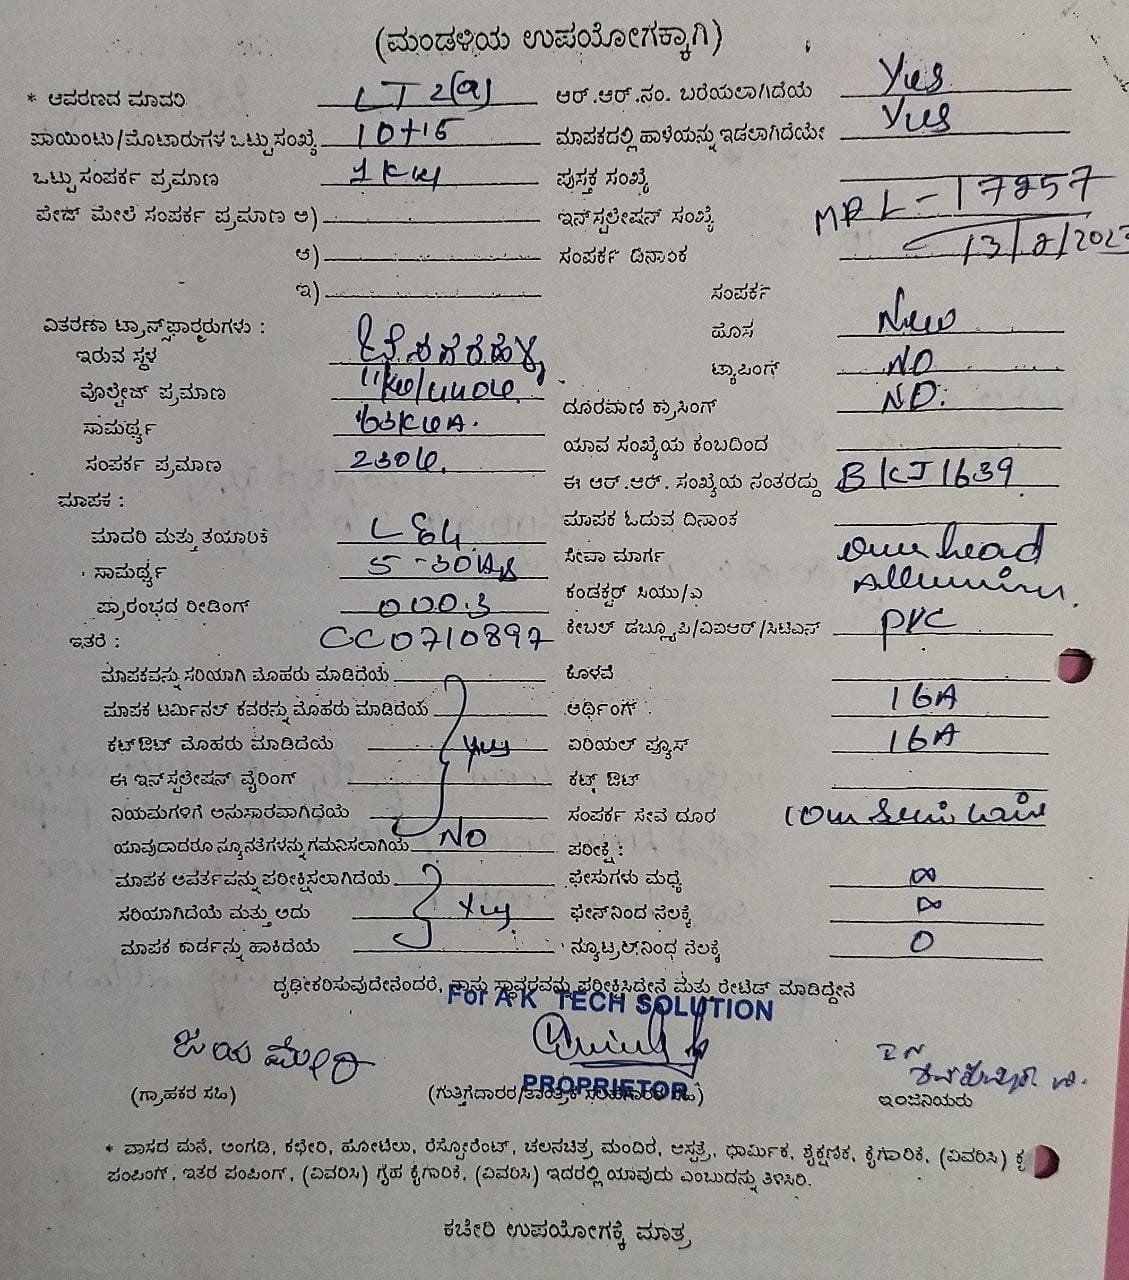 (ಮಂಡಳಿಯ ಉಪಯೋಗಕ್ಕಾಗಿ)
* ಆವರಣದ ಮಾದರಿ LT 2(a) ಆರ್.ಆರ್.ನಂ. ಬರೆಯಲಾಗಿದೆಯೆ Yes
ಪಾಯಿಂಟು/ಮೋಟಾರುಗಳ ಒಟ್ಟು ಸಂಖ್ಯೆ 10+15 ಮಾಪಕದಲ್ಲಿ ಹಾಳೆಯನ್ನು ಇಡಲಾಗಿದೆಯೇ Yes
ಒಟ್ಟು ಸಂಪರ್ಕ ಪ್ರಮಾಣ 1 KW ಪುಸ್ತಕ ಸಂಖ್ಯೆ
ಪೇಡ್ ಮೇಲೆ ಸಂಪರ್ಕ ಪ್ರಮಾಣ ಅ) ಇನ್‌ಸ್ಟಲೇಷನ್ ಸಂಖ್ಯೆ MRL-17257
ಆ) ಸಂಪರ್ಕ ದಿನಾಂಕ 13/2/2023
ಇ) ಸಂಪರ್ಕ
ವಿತರಣಾ ಟ್ರಾನ್ಸ್‌ಫಾರ್ಮರುಗಳು : ಹೊಸ New
ಇರುವ ಸ್ಥಳ ಟ್ಯಾಪಿಂಗ್ NO
ವೊಲ್ಟೇಜ್ ಪ್ರಮಾಣ 11KV/440V ದೂರವಾಣಿ ಕ್ರಾಸಿಂಗ್ NO.
ಸಾಮರ್ಥ್ಯ 63KVA. ಯಾವ ಸಂಖ್ಯೆಯ ಕಂಬದಿಂದ
ಸಂಪರ್ಕ ಪ್ರಮಾಣ 230V. ಈ ಆರ್.ಆರ್. ಸಂಖ್ಯೆಯ ನಂತರದ್ದು BKJ1639
ಮಾಪಕ : ಮಾಪಕ ಓದುವ ದಿನಾಂಕ
ಮಾದರಿ ಮತ್ತು ತಯಾರಿಕೆ ಸೇವಾ ಮಾರ್ಗ Over head
ಸಾಮರ್ಥ್ಯ 5-30 ಕಂಡಕ್ಟರ್ ಸಿಯು/ಎ
ಪ್ರಾರಂಭದ ರೀಡಿಂಗ್ 000.3 ಕೇಬಲ್ ಡಬ್ಲ್ಯೂಪಿ/ವಿಐಆರ್/ಸಿಟಿಎಸ್ PVC
ಇತರೆ : CC0710897
ಮಾಪಕವನ್ನು ಸರಿಯಾಗಿ ಮೊಹರು ಮಾಡಿದೆಯೆ ಕೊಳವೆ
ಮಾಪಕ ಟರ್ಮಿನಲ್ ಕವರನ್ನು ಮೊಹರು ಮಾಡಿದೆಯೆ ಆರ್ಥಿಂಗ್ 16A
ಕಟ್‌ಔಟ್ ಮೊಹರು ಮಾಡಿದೆಯೆ Yes ಏರಿಯಲ್ ಪ್ಯೂಸ್ 16A
ಈ ಇನ್‌ಸ್ಟಲೇಷನ್ ವೈರಿಂಗ್ ಕಟ್ಸ್ ಔಟ್
ನಿಯಮಗಳಿಗೆ ಅನುಸಾರವಾಗಿಧೆಯೆ ಸಂಪರ್ಕ ಸೇವ ದೂರ
ಯಾವುದಾದರೂ ನ್ಯೂನತೆಗಳನ್ನು ಗಮನಿಸಲಾಗಿಯೆ NO ಪರೀಕ್ಷೆ :
ಮಾಪಕ ಆವರ್ತವನ್ನು ಪರೀಕ್ಷಿಸಲಾಗಿದೆಯೆ ಫೇಸುಗಳು ಮಧ್ಯೆ ∞
ಸರಿಯಾಗಿದೆಯೆ ಮತ್ತು ಅದು Yes ಫೇಸ್‌ನಿಂದ ನೆಲಕ್ಕೆ ∞
ಮಾಪಕ ಕಾರ್ಡನ್ನು ಹಾಕಿದೆಯೆ ನ್ಯೂಟ್ರಲ್‌ನಿಂಧ ನೆಲಕ್ಕೆ 0
ದೃಢೀಕರಿಸುವುದೇನೆಂದರೆ, ನಾನು ಸ್ಥಾವರವನ್ನು ಪರೀಕ್ಷಿಸಿದ್ದೇನೆ ಮತ್ತು ರೇಟಿಡ್ ಮಾಡಿದ್ದೇನೆ
For A K TECH SOLUTION
ಜಯ ಮೇರಿ
PROPRIETOR
(ಗ್ರಾಹಕರ ಸಹಿ) (ಗುತ್ತಿಗೆದಾರರ/ತಾಂತ್ರಿಕ ಸಲಹೆಗಾರರ ಸಹಿ) ಇಂಜಿನಿಯರು
* ವಾಸದ ಮನೆ, ಅಂಗಡಿ, ಕಛೇರಿ, ಹೋಟೆಲು, ರೆಸ್ಟೋರೆಂಟ್, ಚಲನಚಿತ್ರ ಮಂದಿರ, ಆಸ್ಪತ್ರೆ, ಧಾರ್ಮಿಕ, ಶೈಕ್ಷಣಿಕ, ಕೈಗಾರಿಕೆ, (ವಿವರಿಸಿ) ಕೃ
ಪಂಪಿಂಗ್, ಇತರ ಪಂಪಿಂಗ್, (ವಿವರಿಸಿ) ಗೃಹ ಕೈಗಾರಿಕೆ, (ವಿವರಿಸಿ) ಇದರಲ್ಲಿ ಯಾವುದು ಎಂಬುದನ್ನು ತಿಳಿಸಿರಿ.
ಕಚೇರಿ ಉಪಯೋಗಕ್ಕೆ ಮಾತ್ರ